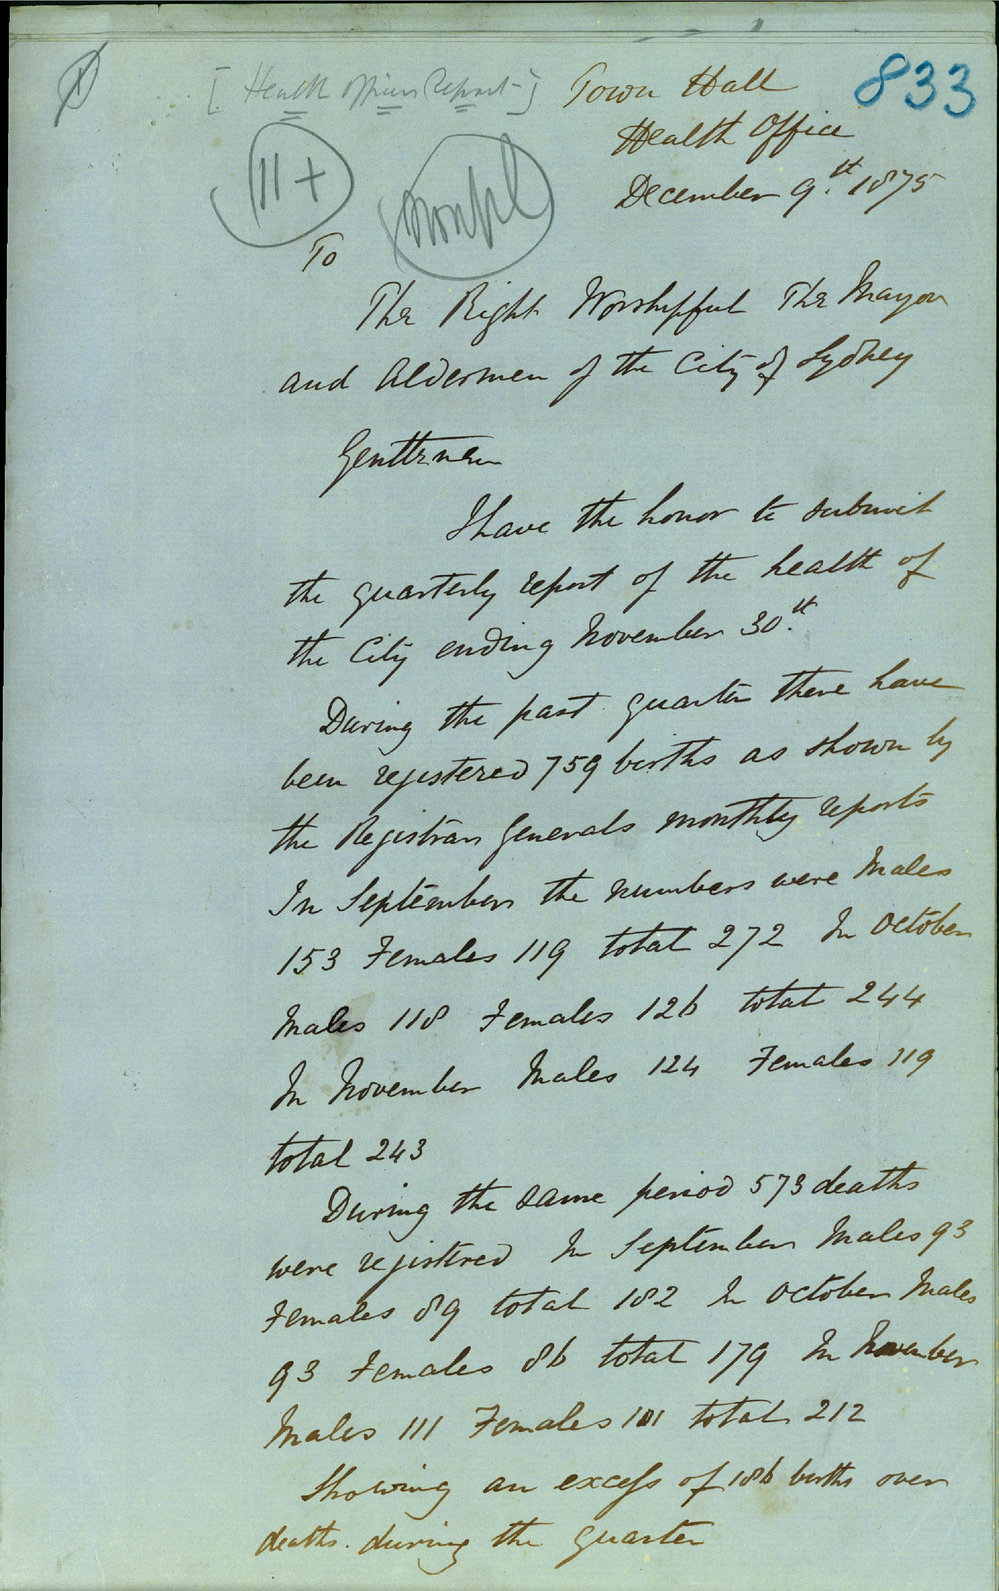 [Health Officers Report]
833
Town Hall
Health Office
December 9.th 1875
111 +
To
The Right Worshipful The Mayor
and Aldermen of the City of Sydney
Gentlemen
I have the honor to submit
the quarterly report of the health of
the City ending November 30.th
During the past quarter there have
been registered 759 births as shown by
the Registrar Generals monthly reports
In September the numbers were Males
153 Females 119 total 272 In October
Males 118 Females 126 total 244
In November Males 124 Females 119
total 243
During the same period 573 deaths
were registered In September Males 93
Females 89 total 182 In October Males
93 Females 86 total 179 In November
Males 111 Females 101 total 212
Showing an excess of 186 births over
deaths during the quarter